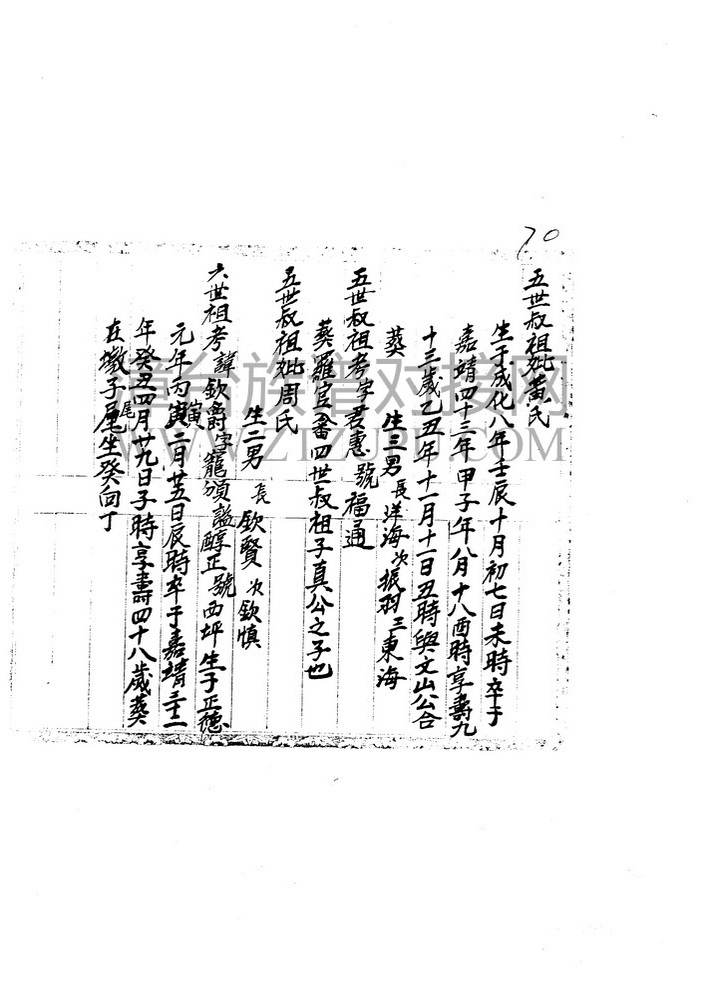 70
五世叔祖妣黃氏
生于成化八年壬辰十月初七日未時卒于
嘉靖四十三年甲子年八月十八酉時享壽九
十三歲乙丑年十一月十一日丑時與文山公合
葬 生三男長洋海次振羽三東海
五世叔祖考字君惠號福通
葬羅宦畬四世叔祖子真公之子也
五世叔祖妣周氏
生二男 長欽賢次欽慎
六世祖考諱欽爵字寵頒謚醇正號西坪生于正德
元年丙寅寅二月廿五日辰時卒于嘉靖三十二
年癸丑四月廿九日子時享壽四十八歲葬
在墩子尾尾坐癸向丁
漳台族谱对接网
WWW.ZTZUPU.COM